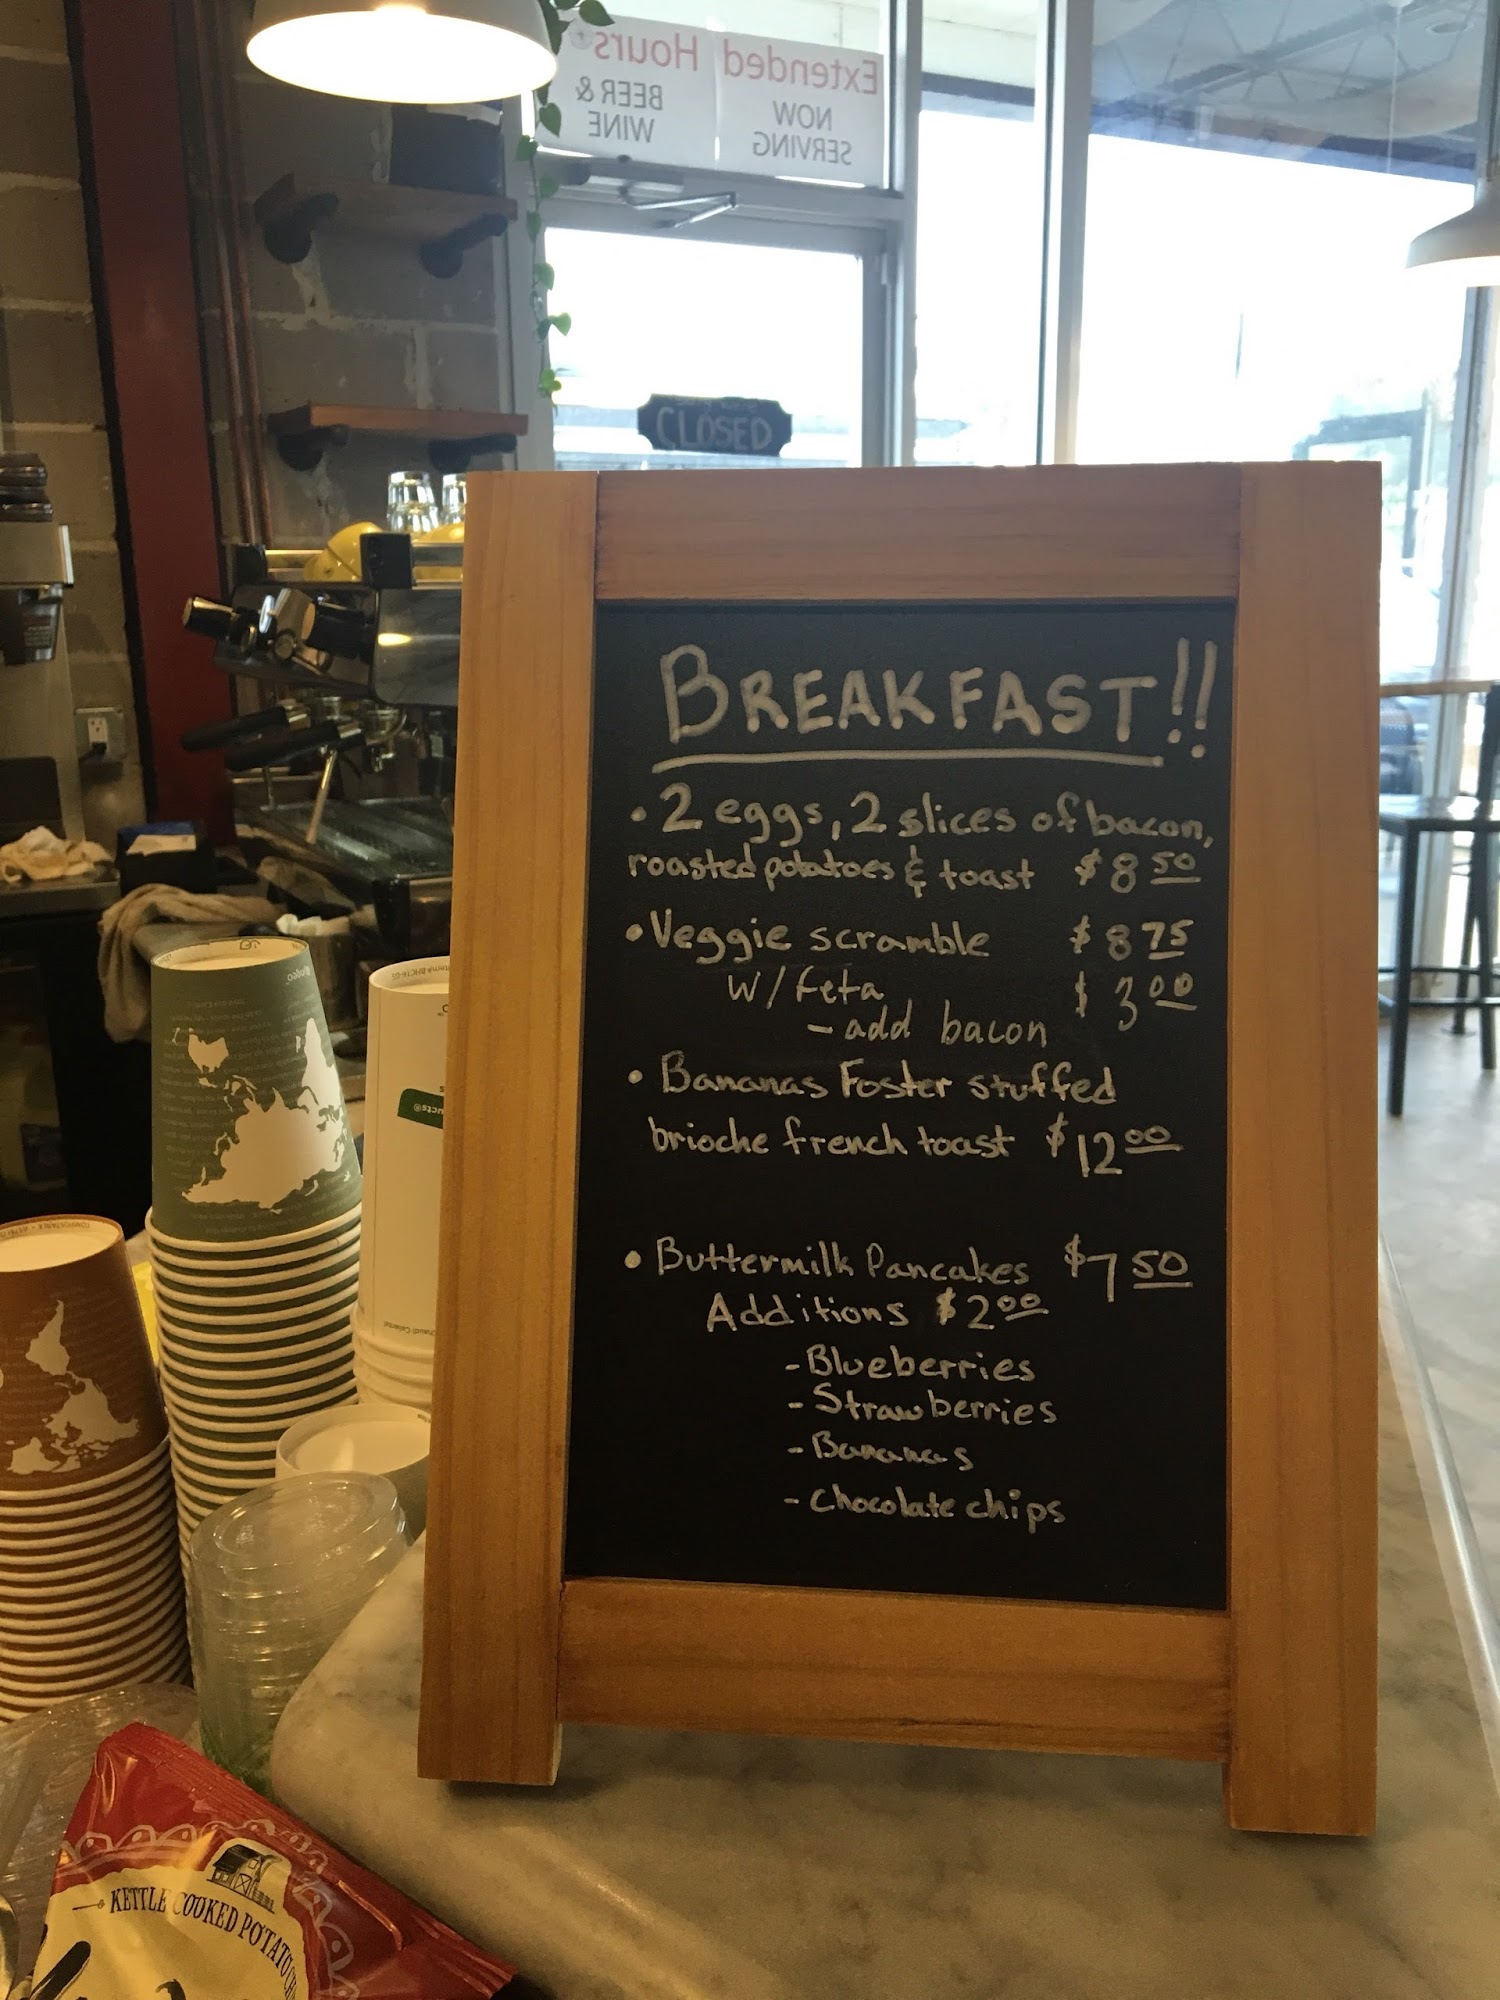 Extended Hours
NOW SERVING
BEER & WINE
CLOSED
BREAKFAST!!
• 2 eggs, 2 slices of bacon,
roasted potatoes & toast $8 50
• Veggie scramble $8 75
w/ feta $3 00
- add bacon
• Bananas Foster stuffed
brioche french toast $12 00
• Buttermilk Pancakes $7 50
Additions $2 00
- Blueberries
- Strawberries
- Bananas
- Chocolate chips
KETTLE COOKED POTATO